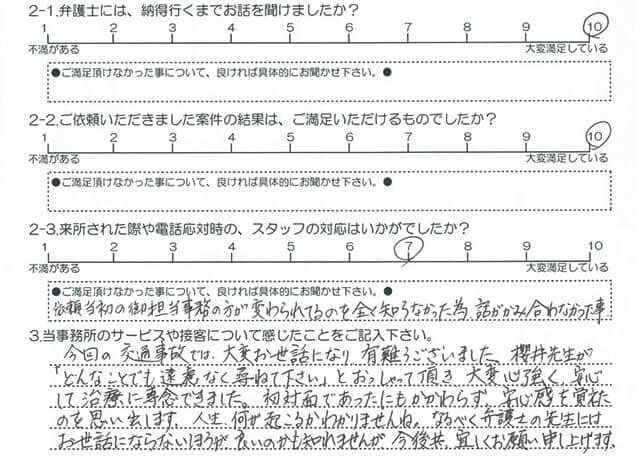 2-1.弁護士には、納得行くまでお話を聞けましたか?
1 2 3 4 5 6 7 8 9 10
不満がある 大変満足している
●ご満足頂けなかった事について、良ければ具体的にお聞かせ下さい。●
2-2.ご依頼いただきました案件の結果は、ご満足いただけるものでしたか?
1 2 3 4 5 6 7 8 9 10
不満がある 大変満足している
●ご満足頂けなかった事について、良ければ具体的にお聞かせ下さい。●
2-3.来所された際や電話応対時の、スタッフの対応はいかがでしたか?
1 2 3 4 5 6 7 8 9 10
不満がある 大変満足している
●ご満足頂けなかった事について、良ければ具体的にお聞かせ下さい。●
依頼当初の御担当事務の方が変わられてるのを全く知らなかった為、話がかみ合わなかった事
3.当事務所のサービスや接客について感じたことをご記入下さい。
今回の交通事故では、大変お世話になり有難うございました、櫻井先生が
「どんなことでも遠慮なく尋ねて下さい」とおっしゃって頂き大変心強く、安心
して治療に専念できました。初対面であったにもかかわらず、安心感を覚えた
のを思い出します。人生、何が起こるかわかりませんね。なるべく弁護士の先生には
お世話にならないほうが良いのかも知れませんが今後共、宜しくお願い申し上げます。